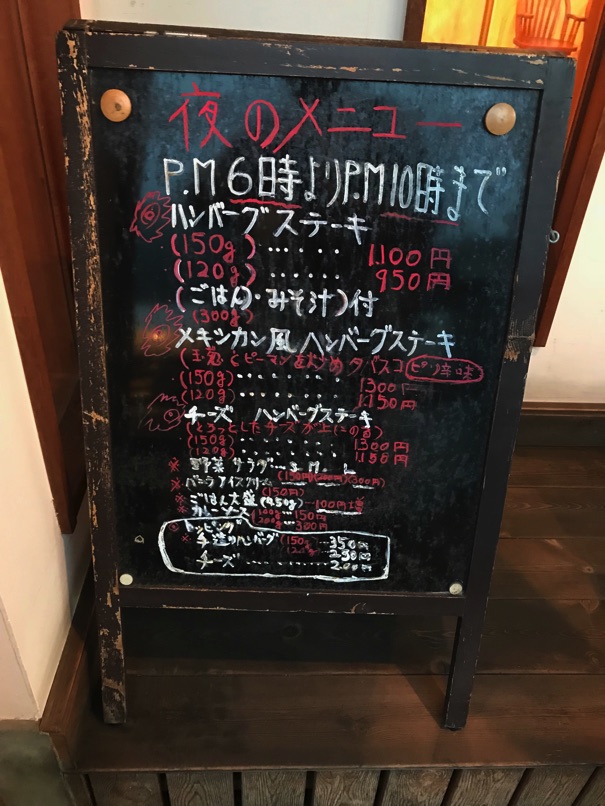 夜のメニュー
P.M 6時よりP.M 10時まで
ハンバーグステーキ
(150g)‥‥‥ 1.100円
(120g)‥‥‥ 950円
(ごはん・みそ汁)付
(300g)
メキシカン風ハンバーグステーキ
(玉葱とピーマンを炒め タバスコ ピリ辛味)
(150g)‥‥‥ 1300円
(120g)‥‥‥ 1.150円
チーズ ハンバーグステーキ
(とろっとしたチーズが上に
(150g)‥‥‥ 1300円
(120g)‥‥‥ 1.150円
※ 野菜サラダ…S.M.L
(150円)(200円)(300円)
※ バニラアイスクリーム
(150円)
※ ごはん大盛(450g)…100円増
※ カレーソース (100g…150円
(200g…300円
トッピング
※ 手造りハンバーグ (150g)…350円
(120g)…290円
チーズ………200円